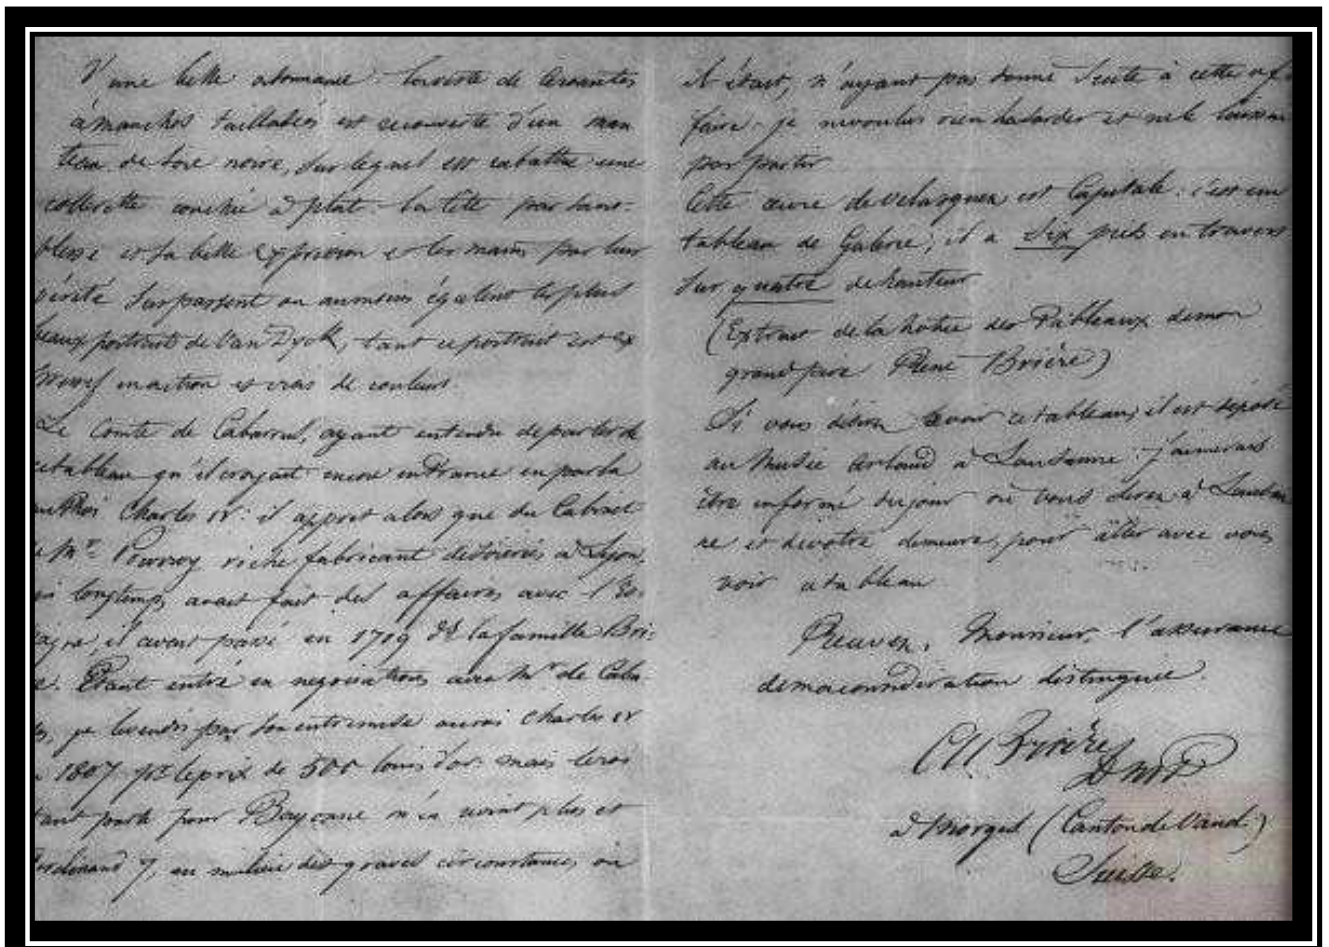 D'une belle ordonnance. La veste de
à manches tailladées est recouverte d'un man
teau de soie noire, sur lequel est rabattue une
collerette couchée à plat. La tête par sa no-
blesse et sa belle expression et les mains par leur
vérité surpassent ou au moins égalent les plus
beaux portraits de Van Dyck, tant ce portrait est ex
pressif en action et vrai de couleur.
Le Comte de Cabarrus, ayant entendu parler de
ce tableau qu'il croyait encore en France en parla
au Roi Charles IV: il apprit alors que du Cabinet
de Mr. riche fabricant de soieries à Lyon,
qui longtemps avait fait des affaires avec l'Es-
pagne, il avait passé en 1719 de la famille Bri-
ère. Etant entré en négociations avec Mr de Caba-
rrus, je le vendis par son entremise au roi Charles IV
en 1807 pr le prix de 500 louis d'or. mais le roi
étant parti pour Bayonne n'en revint plus et
Ferdinand 7, au milieu des graves circonstances où
il était, n'ayant pas donné suite à cette af
faire. je ne voulus rien hasarder et ne le laissai
pas partir
Cette œuvre de Velasquez est Capitale: c'est un
tableau de Galerie; il a dix pieds en travers
sur quatre de hauteur
(Extrait de la Notice des Tableaux de mon
grand père René Brière)
Si vous désirez voir ce tableau, il est déposé
au Musée Arlaud à Lausanne. J'aimerais
être informé du jour où vous serez à Lausan
ne et de votre demeure, pour aller avec vous
voir ce tableau
Recevez, Monsieur, l'assurance
de ma considération distinguée.
Brière
à Morges (Canton de Vaud.)
Suisse.